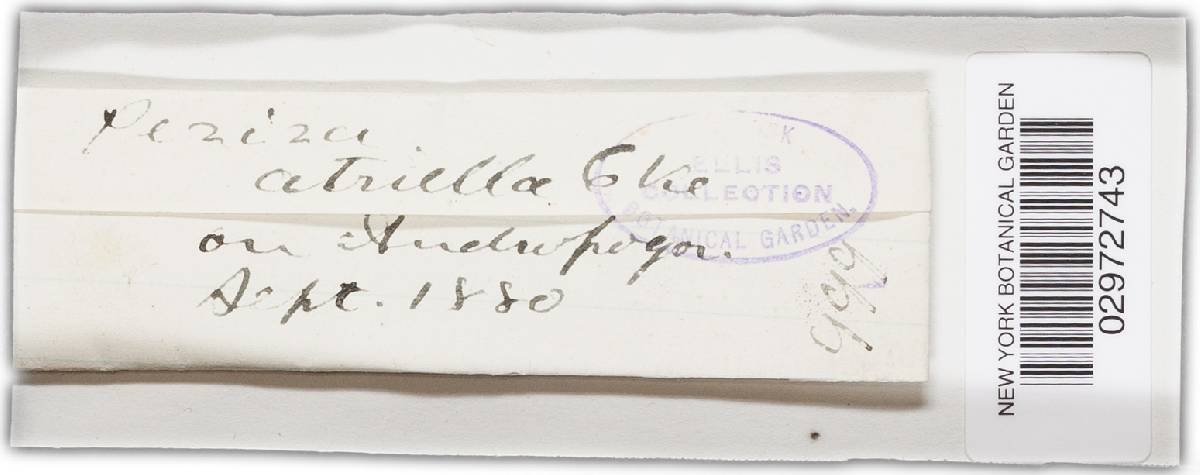 Peziza
atriella Cke
on Andropogon.
Sept. 1880
ELLIS
COLLECTION
BOTANICAL GARDEN.
NEW YORK BOTANICAL GARDEN
02972743